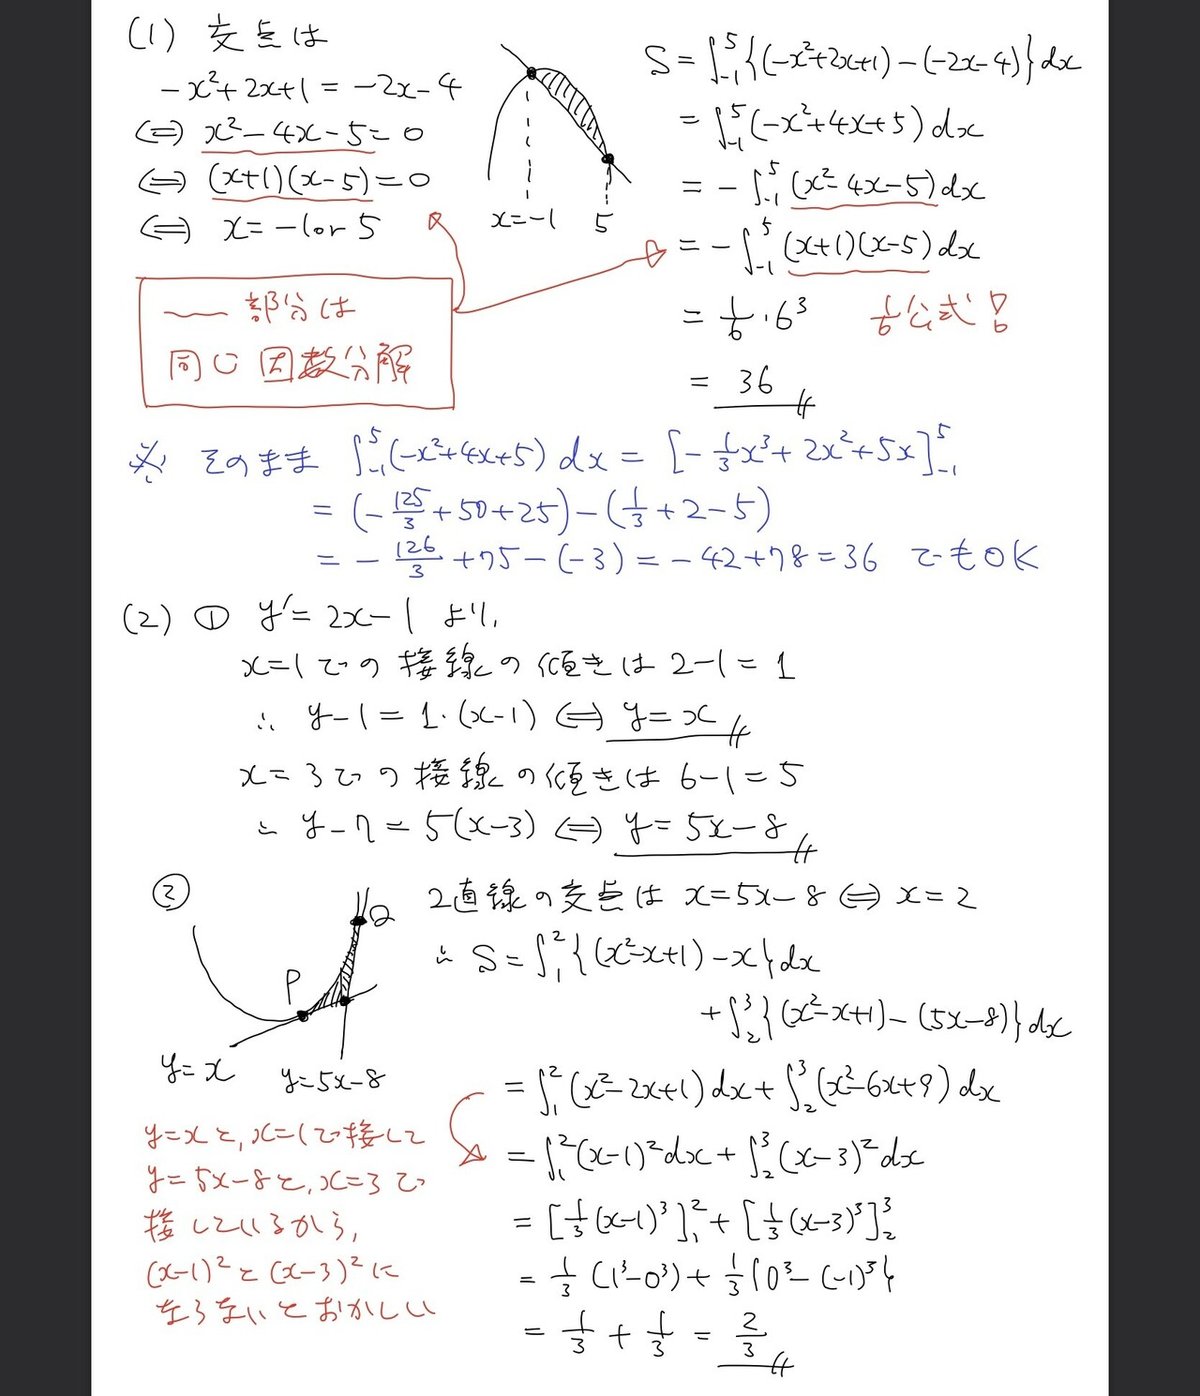 (1) 交点は
-x²+2x+1=-2x-4
⇔ x²-4x-5=0
⇔ (x+1)(x-5)=0
⇔ x=-1 or 5
x=-1 5
～～部分は
同じ因数分解
S=∫₋₁⁵{(-x²+2x+1)-(-2x-4)}dx
=∫₋₁⁵(-x²+4x+5)dx
=-∫₋₁⁵(x²-4x-5)dx
=-∫₋₁⁵(x+1)(x-5)dx
=1/6・6³ 1/6公式!!
=36
※ そのまま ∫₋₁⁵(-x²+4x+5)dx=[-1/3x³+2x²+5x]₋₁⁵
=(-125/3+50+25)-(1/3+2-5)
=-126/3+75-(-3)=-42+78=36 でもOK
(2) ① y'=2x-1 より、
x=1での接線の傾きは2-1=1
∴ y-1=1・(x-1) ⇔ y=x
x=3での接線の傾きは6-1=5
∴ y-7=5(x-3) ⇔ y=5x-8
②
Q
P
y=x y=5x-8
2直線の交点は x=5x-8 ⇔ x=2
∴ S=∫₁²{(x²-x+1)-x}dx
+∫₂³{(x²-x+1)-(5x-8)}dx
=∫₁²(x²-2x+1)dx+∫₂³(x²-6x+9)dx
=∫₁²(x-1)²dx+∫₂³(x-3)²dx
=[1/3(x-1)³]₁²+[1/3(x-3)³]₂³
=1/3(1³-0³)+1/3{0³-(-1)³}
=1/3+1/3=2/3
y=xと、x=1で接して
y=5x-8と、x=3で
接しているから、
(x-1)²と(x-3)²に
ならないとおかしい